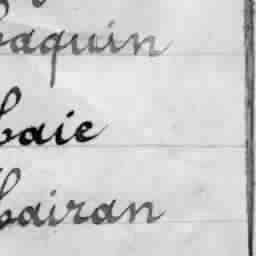 baquin
baie
bairan